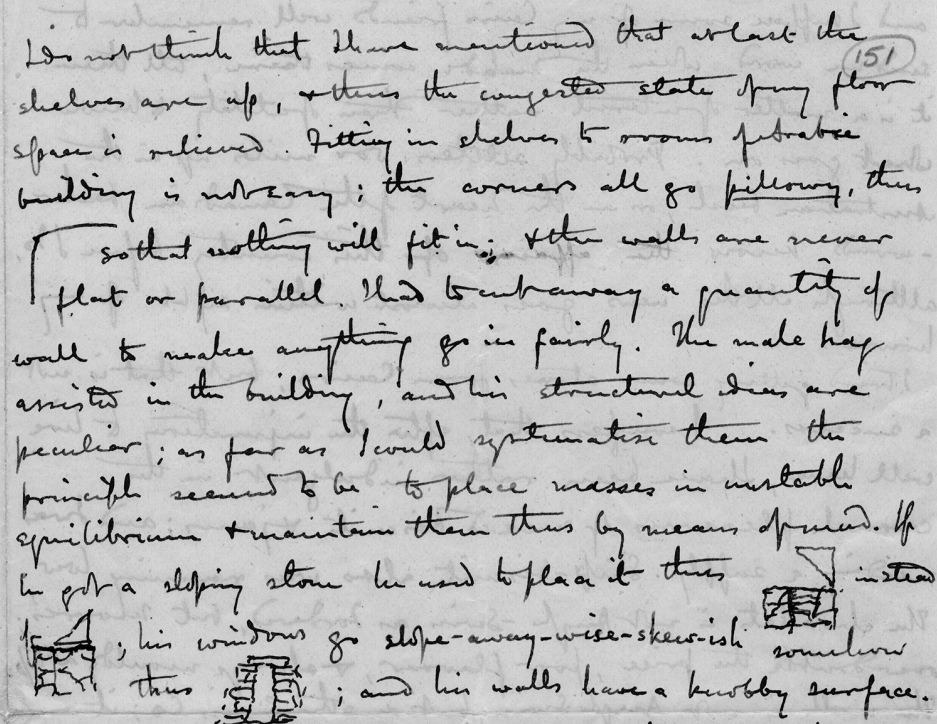 I do not think that I have mentioned that at last the
151
shelves are up, & thus the congested state of my floor
space is relieved. Fitting in shelves to rooms of Arabic
building is not easy; the corners all go pillowy, thus
so that nothing will fit in; & the walls are never
flat or parallel. I had to cut away a quantity of
wall to make anything go in fairly. The male hag
assisted in the building, and his structural ideas are
peculiar; as far as I could systematise them the
principle seemed to be to place masses in unstable
equilibrium & maintain them thus by means of mud. If
he got a sloping stone he used to place it thus instead
of ; his windows go slope-away-wise-skew-ish somehow
thus ; and his walls have a knobby surface.